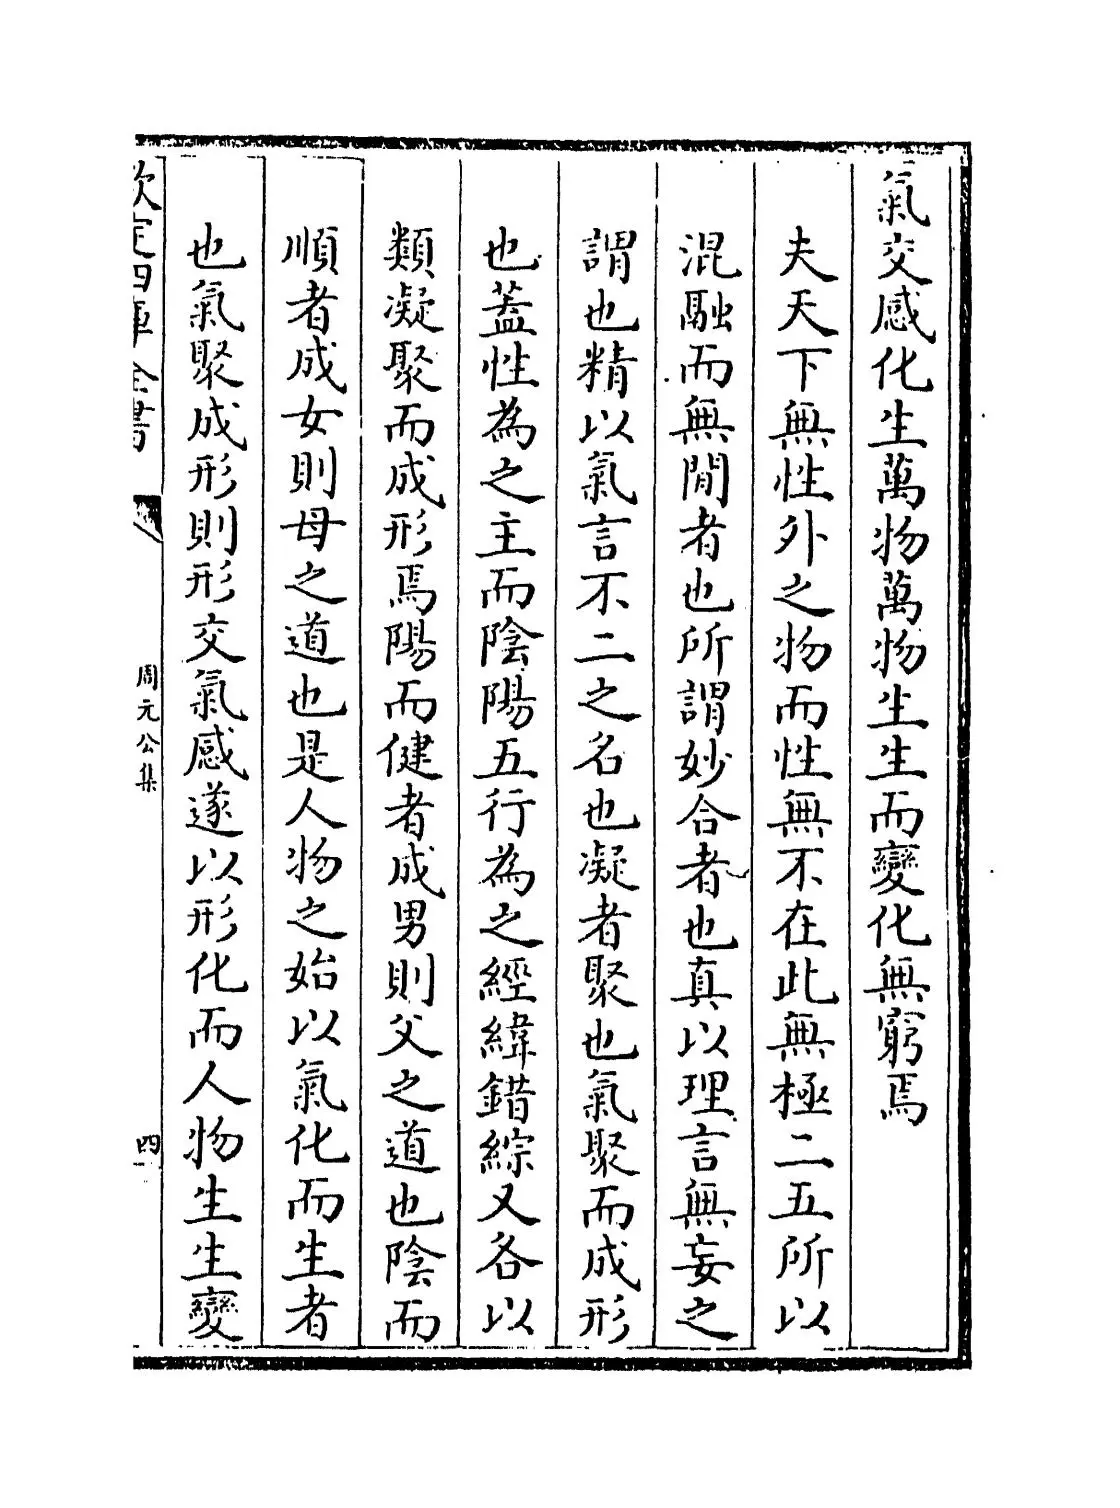 氣交感化生萬物萬物生生而變化無窮焉
夫天下無性外之物而性無不在此無極二五所以
混融而無閒者也所謂妙合者也真以理言無妄之
謂也精以氣言不二之名也凝者聚也氣聚而成形
也蓋性為之主而陰陽五行為之經緯錯綜又各以
類凝聚而成形焉陽而健者成男則父之道也陰而
順者成女則母之道也是人物之始以氣化而生者
也氣聚成形則形交氣感遂以形化而人物生生變
欽定四庫全書
周元公集
四